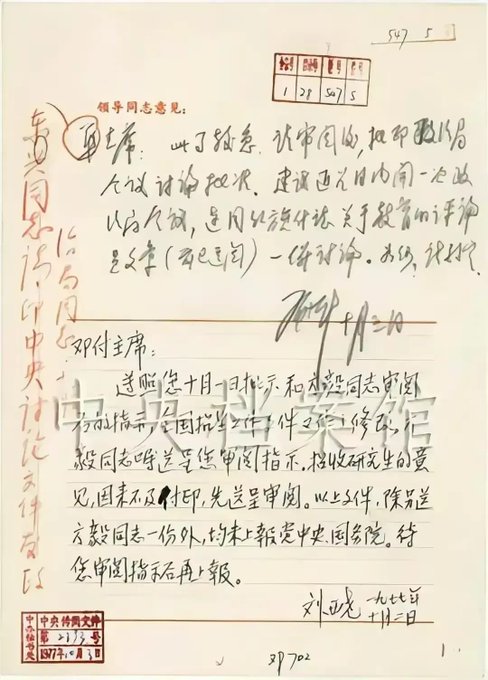 547 5
1 28 547 5
领导同志意见:
华主席:此事较急,请审阅后,批印政治局
会议讨论批准。建议近几日内开一次政
治局会议,连同红旗什志关于教育的评论
员文章(前已送阅)一併讨论。如何,请批示。
十月三日
东兴同志:请印中央讨论文件发政
治局同志
邓付主席:
遵照您十月一日批示和方毅同志审阅
后的指示,全国招生工作文件又作了修改,方
毅同志嘱送呈您审阅指示。招收研究生的意
见,因来不及付印,先送呈审阅。以上文件,除另送
方毅同志一份外,均未上报党中央、国务院。待
您审阅指示后再上报。
刘西尧 一九七七年
十月二日
中央档案馆
中央传阅文件
第2393号
1977年10月3日
邓702